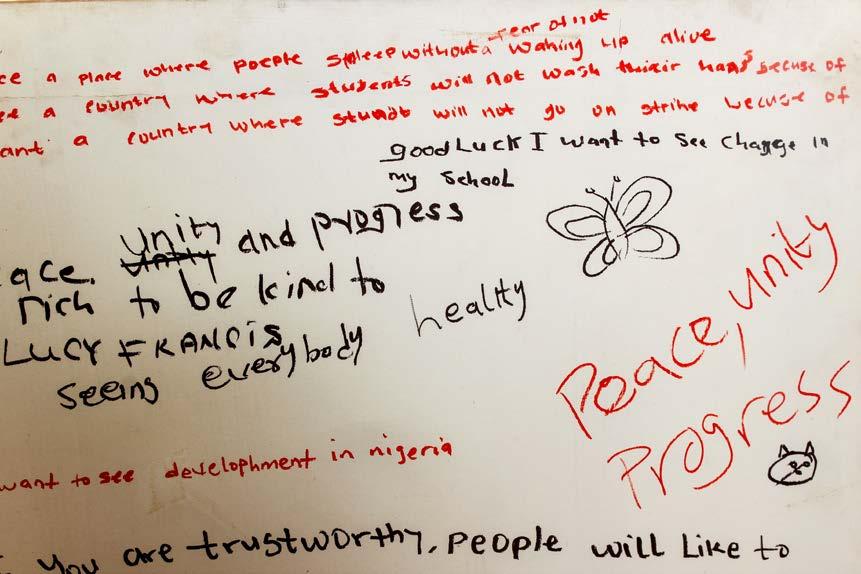 fear of not
ce a place where poeple smleep without a waking up alive
ee a country where students will not wash their hans becuse of
ant a country where studnt will not go on strike becuse of
goodLuck I want to see change in
my school
ace. Unity Unity and progress
rich to be kind to
LUCY FRANCIS
seeing everybody healty
Peace, unity
Progress
want to see development in nigeria
You are trustworthy, People will Like to